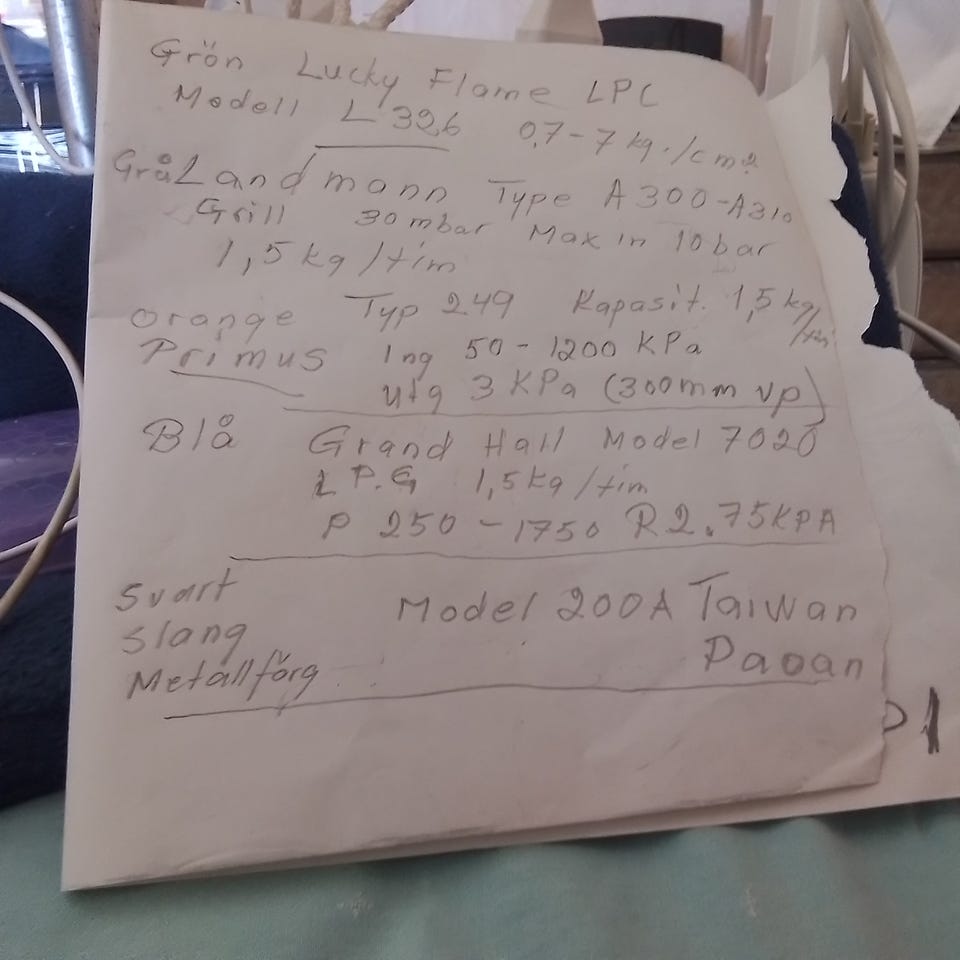 Grön Lucky Flame LPC
Modell L 326 0,7-7 kg./cm2
Grå Landmann Type A300-A310
Grill 30 mbar Max in 10 bar
1,5 kg/tim
Orange Typ 249 Kapasit. 1,5 kg/tim
Primus Ing 50-1200 KPa
utg 3 KPa (300mm vp)
Blå Grand Hall Model 7020
L P.G 1,5kg/tim
P 250-1750 R2.75KPA
Svart
Slang Model 200A Taiwan
Metallfärg Paoan
1